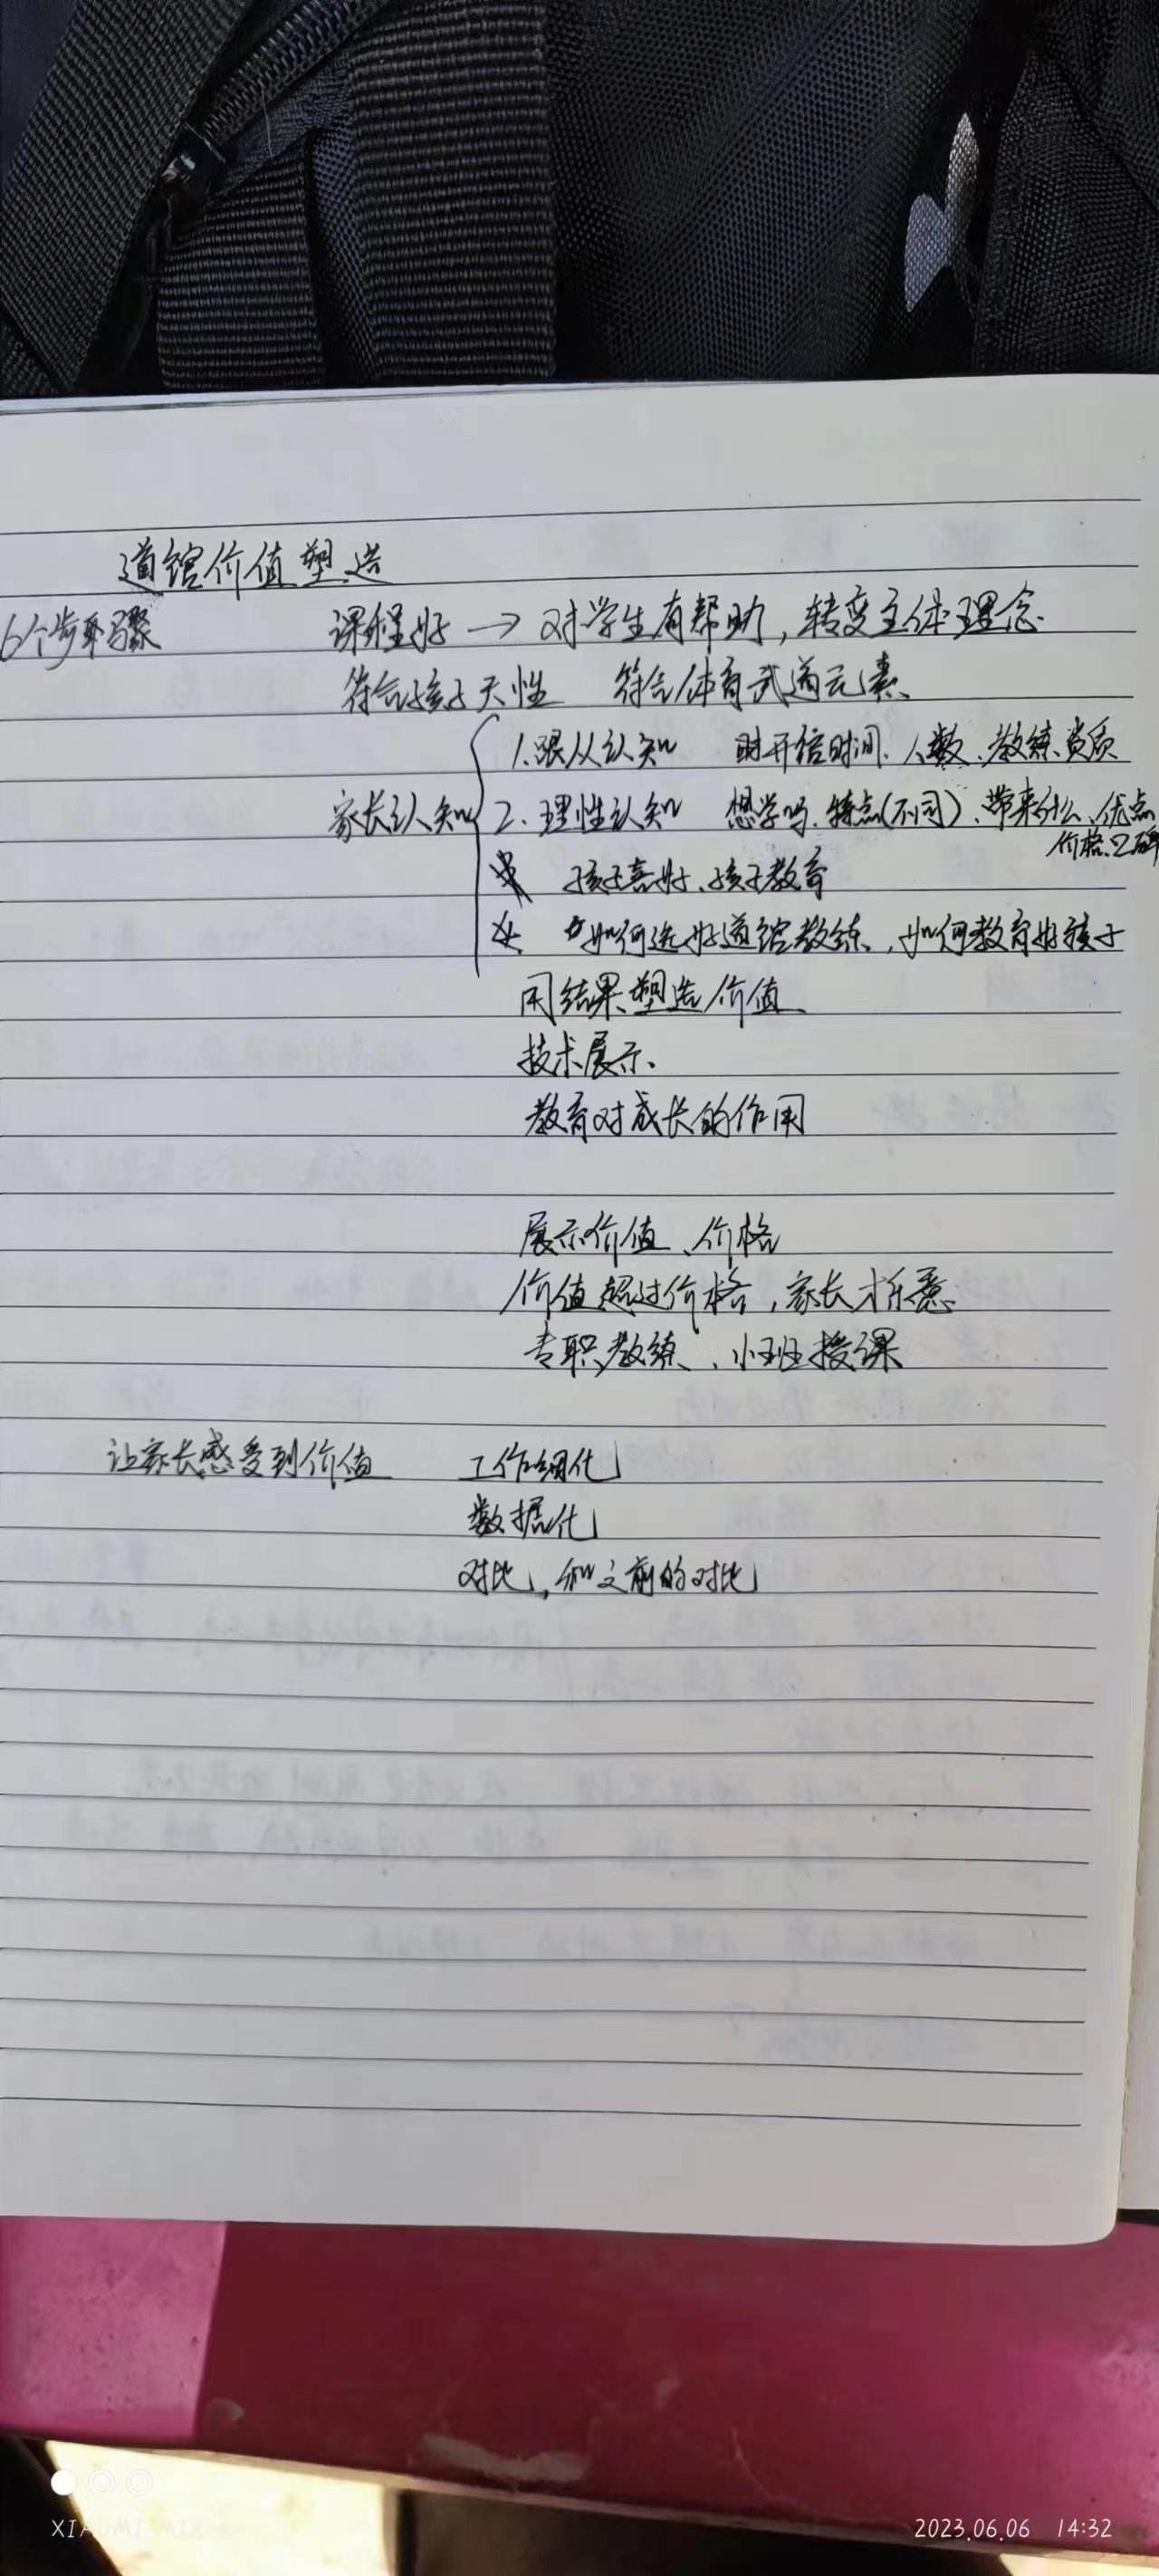 道馆价值塑造
6个步骤 课程好 → 对学生有帮助,转变主体理念
符合孩子天性 符合体育武道元素
1.跟从认知 开馆时间、人数、教练资质
家长认知 2.理性认知 想学吗、特点(不同)、带来什么、优点
价格、口碑
孩子喜好、孩子教育
如何选好道馆教练、如何教育好孩子
用结果塑造价值
技术展示、
教育对成长的作用
展示价值、价格
价值超过价格,家长才乐意
专职教练、小班授课
让家长感受到价值 工作细化
数据化
对比,和之前的对比
XIAOMI MIX
2023.06.06 14:32